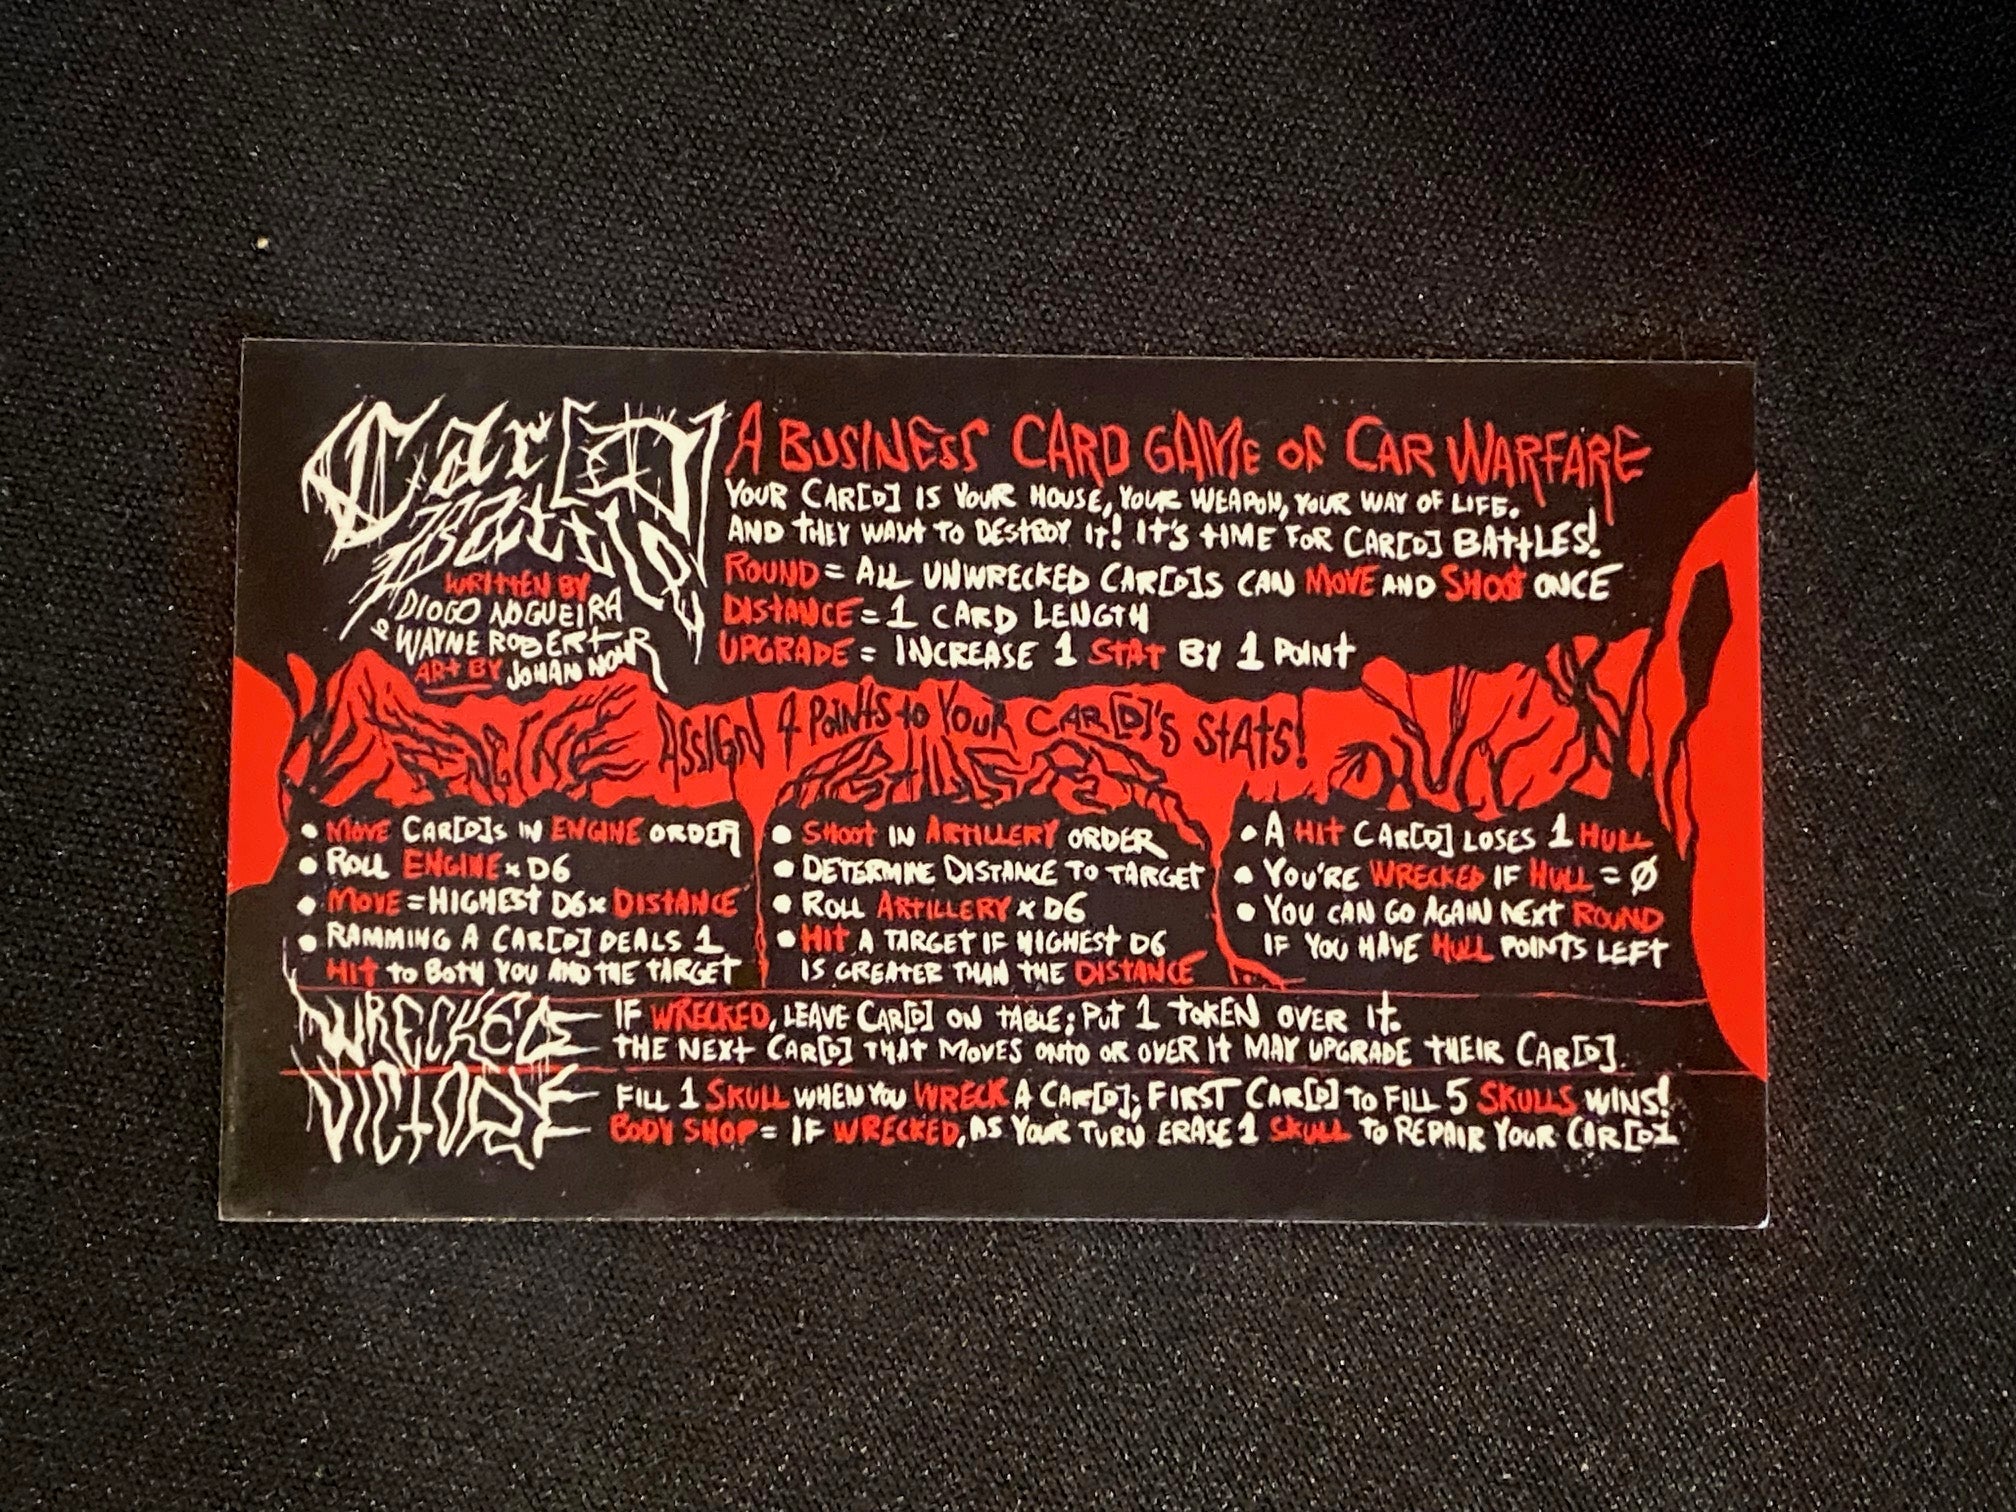 Car[D]
Battles
WRITTEN BY
DIOGO NOGUEIRA
& WAYNE ROBERT
ART BY JOHAN NOHR
A BUSINESS CARD GAME OF CAR WARFARE
YOUR CAR[D] IS YOUR HOUSE, YOUR WEAPON, YOUR WAY OF LIFE.
AND THEY WANT TO DESTROY IT! IT'S TIME FOR CAR[D] BATTLES!
ROUND = ALL UNWRECKED CAR[D]S CAN MOVE AND SHOOT ONCE
DISTANCE = 1 CARD LENGTH
UPGRADE = INCREASE 1 STAT BY 1 POINT
ASSIGN 4 POINTS TO YOUR CAR[D]'S STATS!
ENGINE
• MOVE CAR[D]S IN ENGINE ORDER
• ROLL ENGINE × D6
• MOVE = HIGHEST D6 × DISTANCE
• RAMMING A CAR[D] DEALS 1
HIT TO BOTH YOU AND THE TARGET
ARTILLERY
• SHOOT IN ARTILLERY ORDER
• DETERMINE DISTANCE TO TARGET
• ROLL ARTILLERY × D6
• HIT A TARGET IF HIGHEST D6
IS GREATER THAN THE DISTANCE
HULL
• A HIT CAR[D] LOSES 1 HULL
• YOU'RE WRECKED IF HULL = Ø
• YOU CAN GO AGAIN NEXT ROUND
IF YOU HAVE HULL POINTS LEFT
WRECKED
IF WRECKED, LEAVE CAR[D] ON TABLE; PUT 1 TOKEN OVER IT.
THE NEXT CAR[D] THAT MOVES ONTO OR OVER IT MAY UPGRADE THEIR CAR[D].
VICTORY
FILL 1 SKULL WHEN YOU WRECK A CAR[D]; FIRST CAR[D] TO FILL 5 SKULLS WINS!
BODY SHOP = IF WRECKED, AS YOUR TURN ERASE 1 SKULL TO REPAIR YOUR CAR[D]